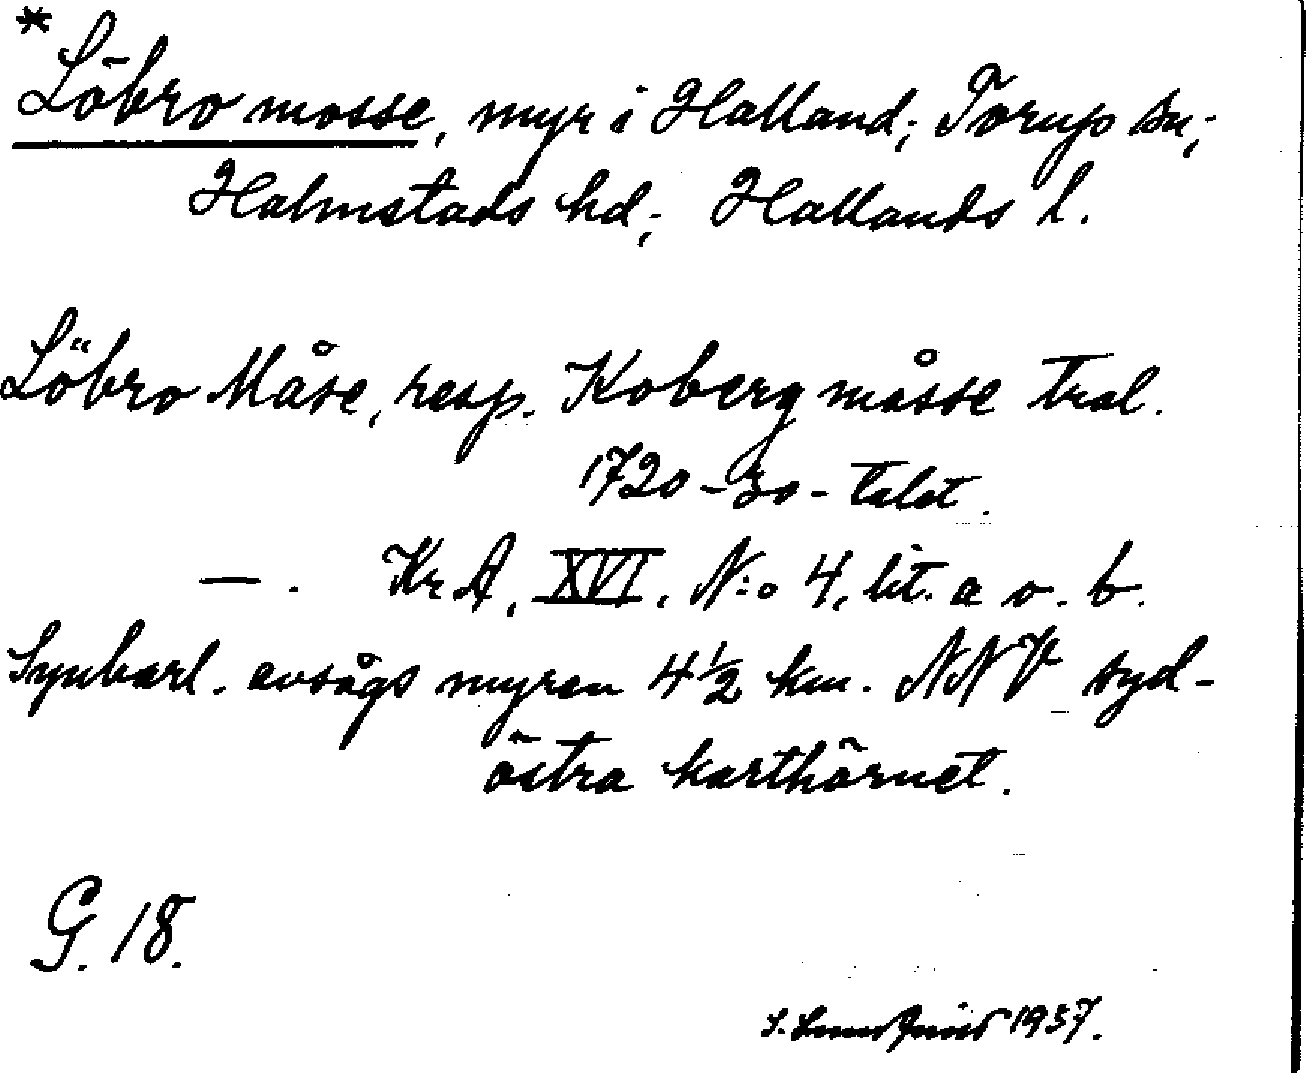 *
Löbro mosse, myr i Halland; Torup sn;
Halmstads hd; Hallands l.
Löbro Måse, resp. Koberg måsse trol.
1720-30-talet.
—. KrA, XVI, N:o 4, lit. a o. b.
Synbarl. avsågs myren 4½ km. NNV syd-
östra karthörnet.
G. 18.
1937.